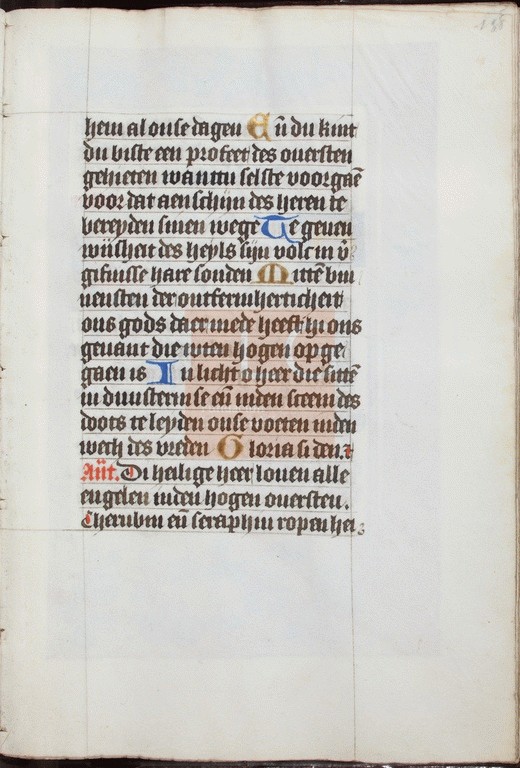 138
hem al onse dagen Eñ du kint
du biste een profeet des ouersten
gehieten want du selste voorgaē
voor dat aenschijn des heren te
bereyden sinen wege Te geuen
wijsheit des heyls sijn volc in v̄
gifnisse hare sonden Mittē bin
nensten der ontfermherticheit
ons gods daer mede heeft hi ons
genant die wten hogen op ge
gaen is In licht o heer die sittē
in duusternise eñ inden sceem des
doots te leyden onse voeten inden
wech des vreden Gloria si den. t
Añt. Di heilige heer louen alle
engelen inden hogen ouersten.
Cherubin eñ seraphin ropen hei